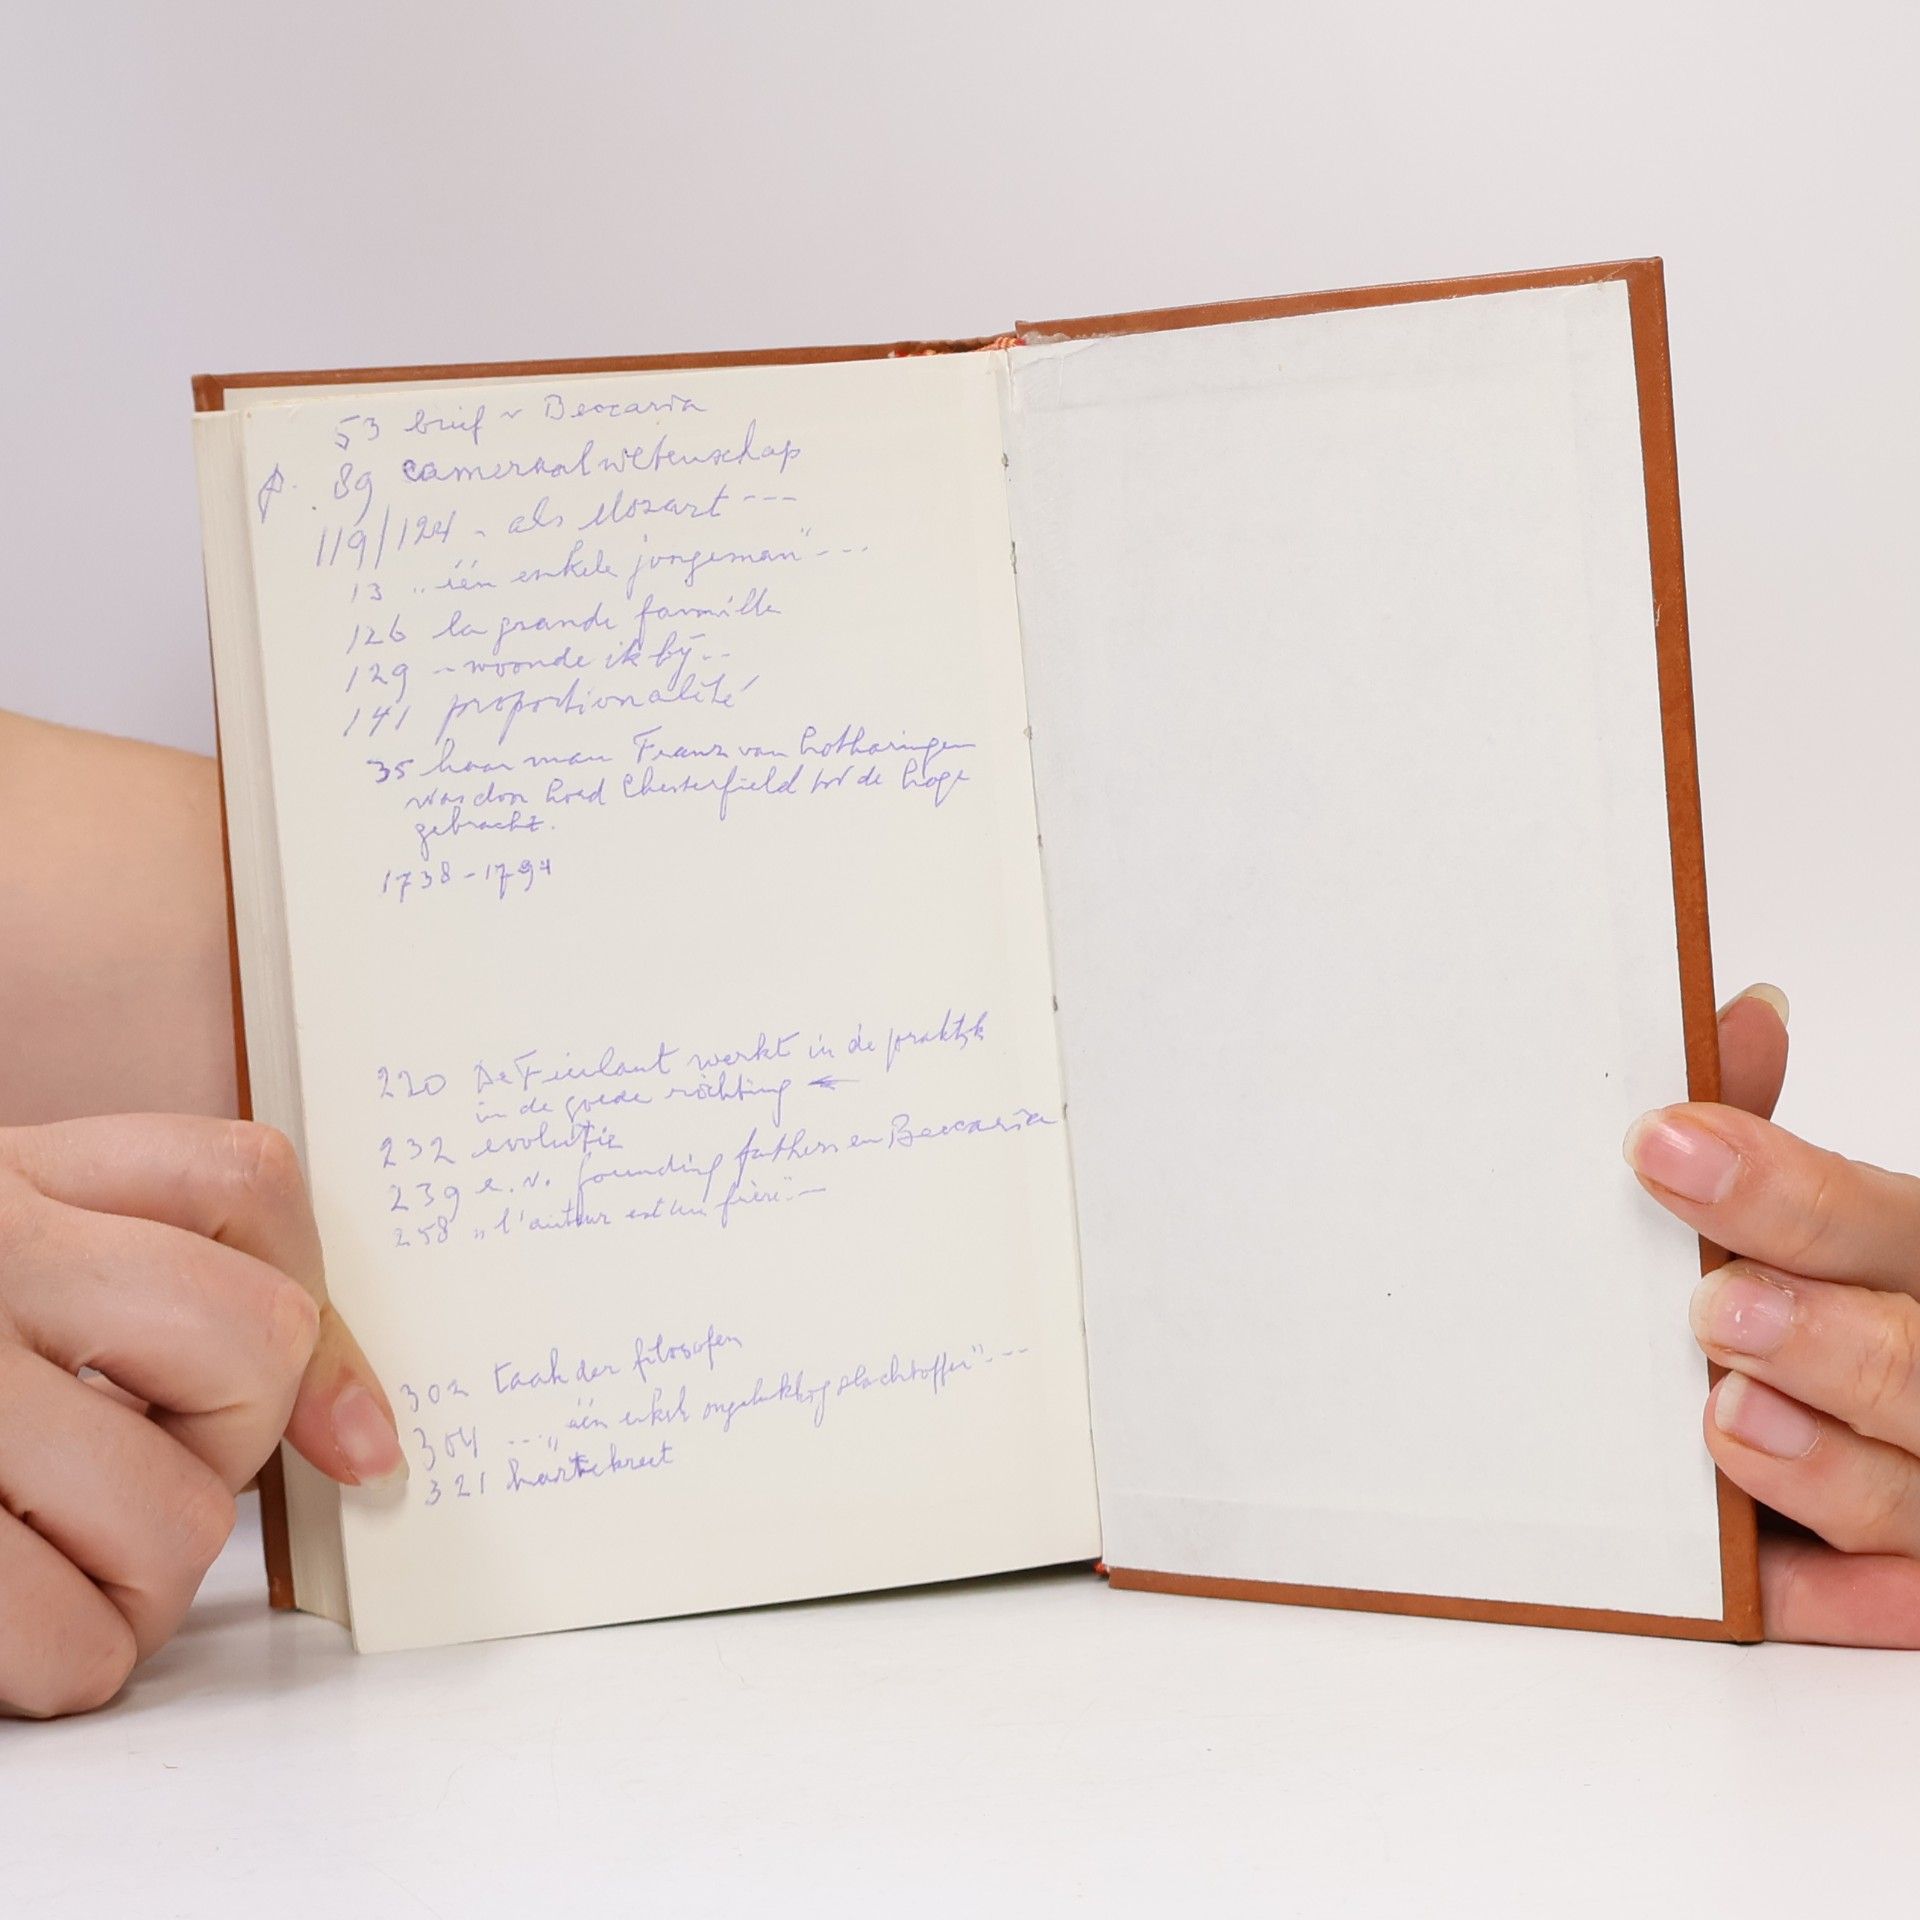 53 brief v Beccaria
p. 89 cameraalwetenschap
119/124 - als Mozart ---
13 „één enkele jongeman" ---
126 la grande famille
129 -- woonde ik bij --
141 proportionalité
35 haar man Franz van Lotharingen
was door Lord Chesterfield tot de loge
gebracht.
1738-1794
220 De Fierlant werkt in de praktijk
in de goede richting
232 evolutie
239 e.v. founding fathers en Beccaria
258 „l'auteur est un frère" --
302 taak der filosofen
304 --- „één enkel ongelukkig slachtoffer" ---
321 hartekreet